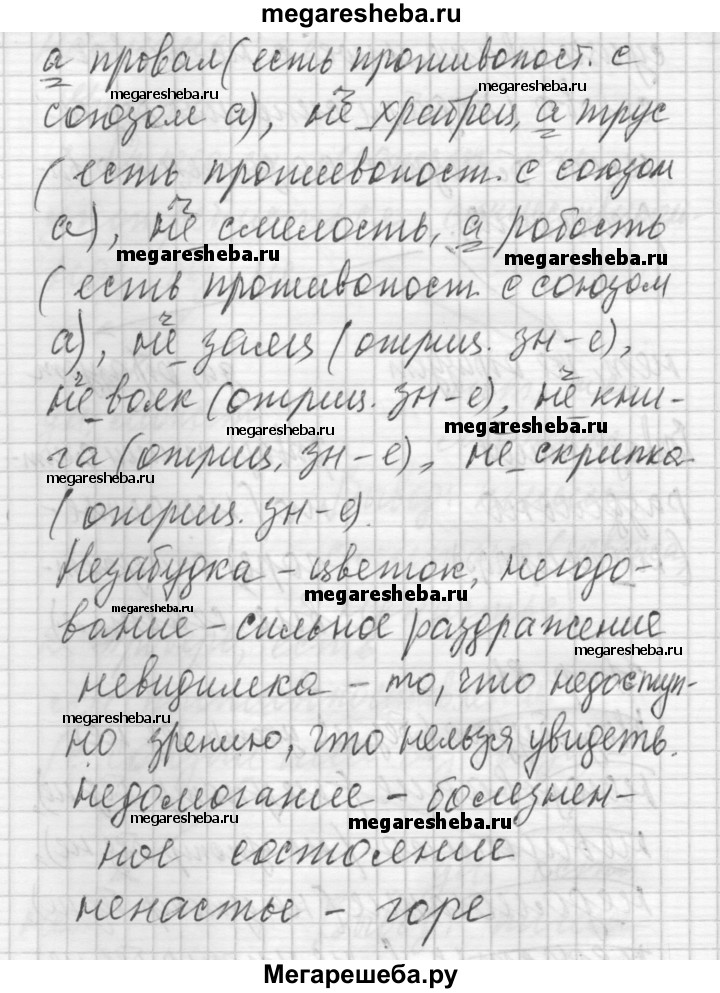 megaresheba.ru
а провал (есть противопост. с
megaresheba.ru megaresheba.ru
союзом а), не храбрец, а трус
(есть противопост. с союзом
а), не смелость, а робость
megaresheba.ru megaresheba.ru
(есть противопост. с союзом
а), не заяц (отриц. зн-е),
не волк (отриц. зн-е), не кни-
megaresheba.ru megaresheba.ru
га (отриц. зн-е), не скрипка
megaresheba.ru
(отриц. зн-е).
Незабудка – цветок, негодо-
megaresheba.ru megaresheba.ru
вание – сильное раздражение
megaresheba.ru
невидимка – то, что недоступ-
megaresheba.ru
но зрению, что нельзя увидеть.
недомогание – болезнен-
megaresheba.ru megaresheba.ru
ное состояние
ненастье – горе
Мегарешеба.ру